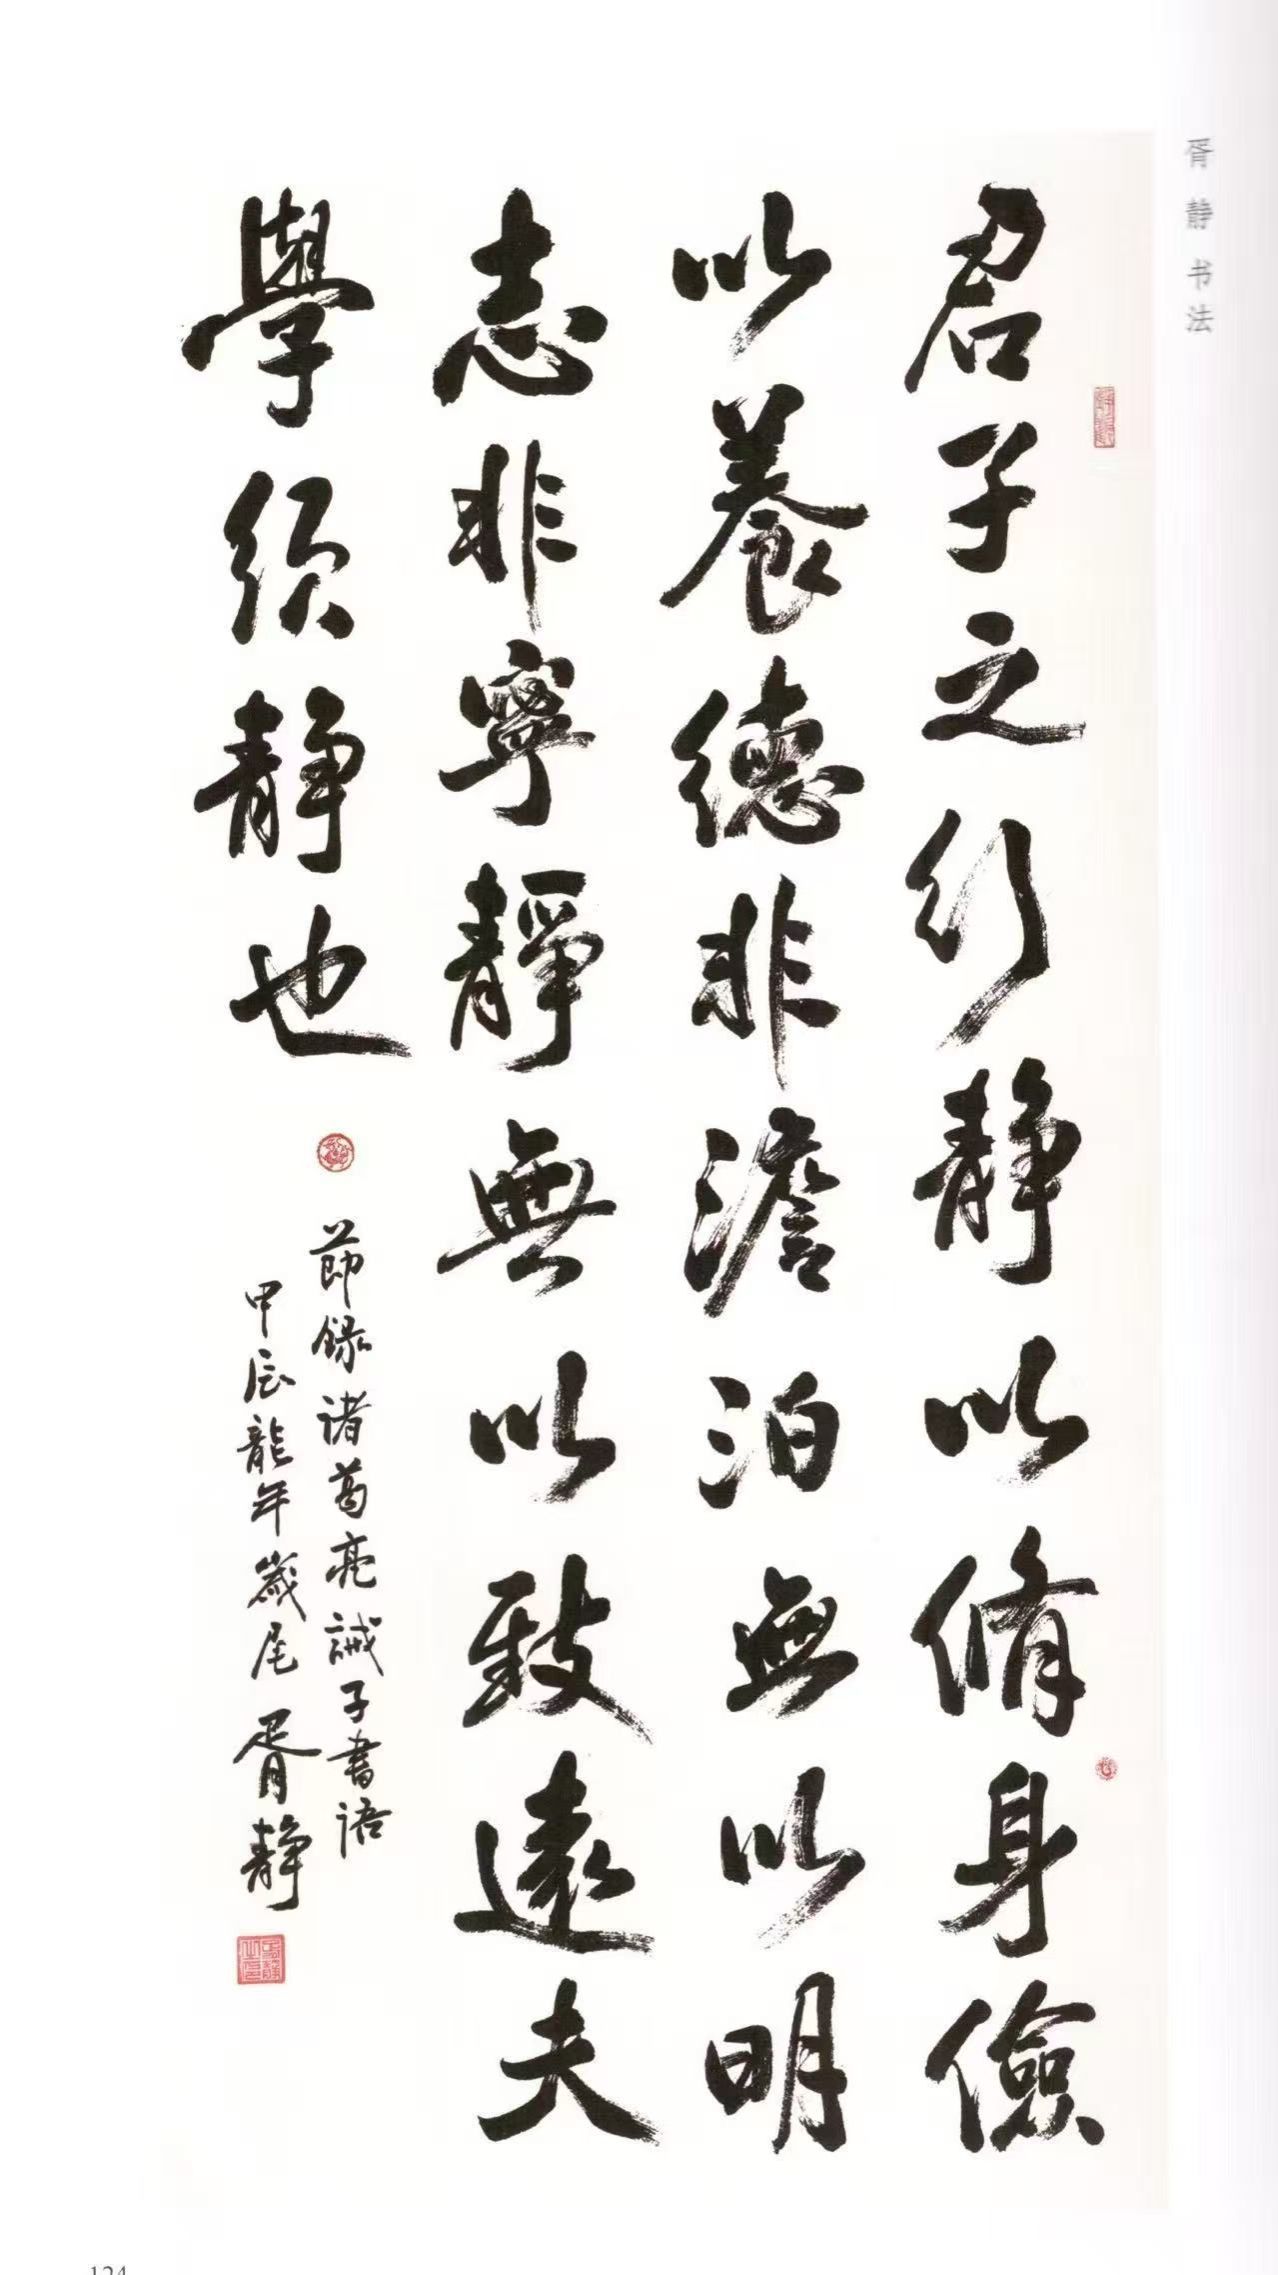 胥静书法
君子之行静以脩身儉
以養德非澹泊無以明
志非寧靜無以致遠夫
學須静也
節録诸葛亮誡子書语
甲辰龍年歲尾胥静
胥靜之印
124